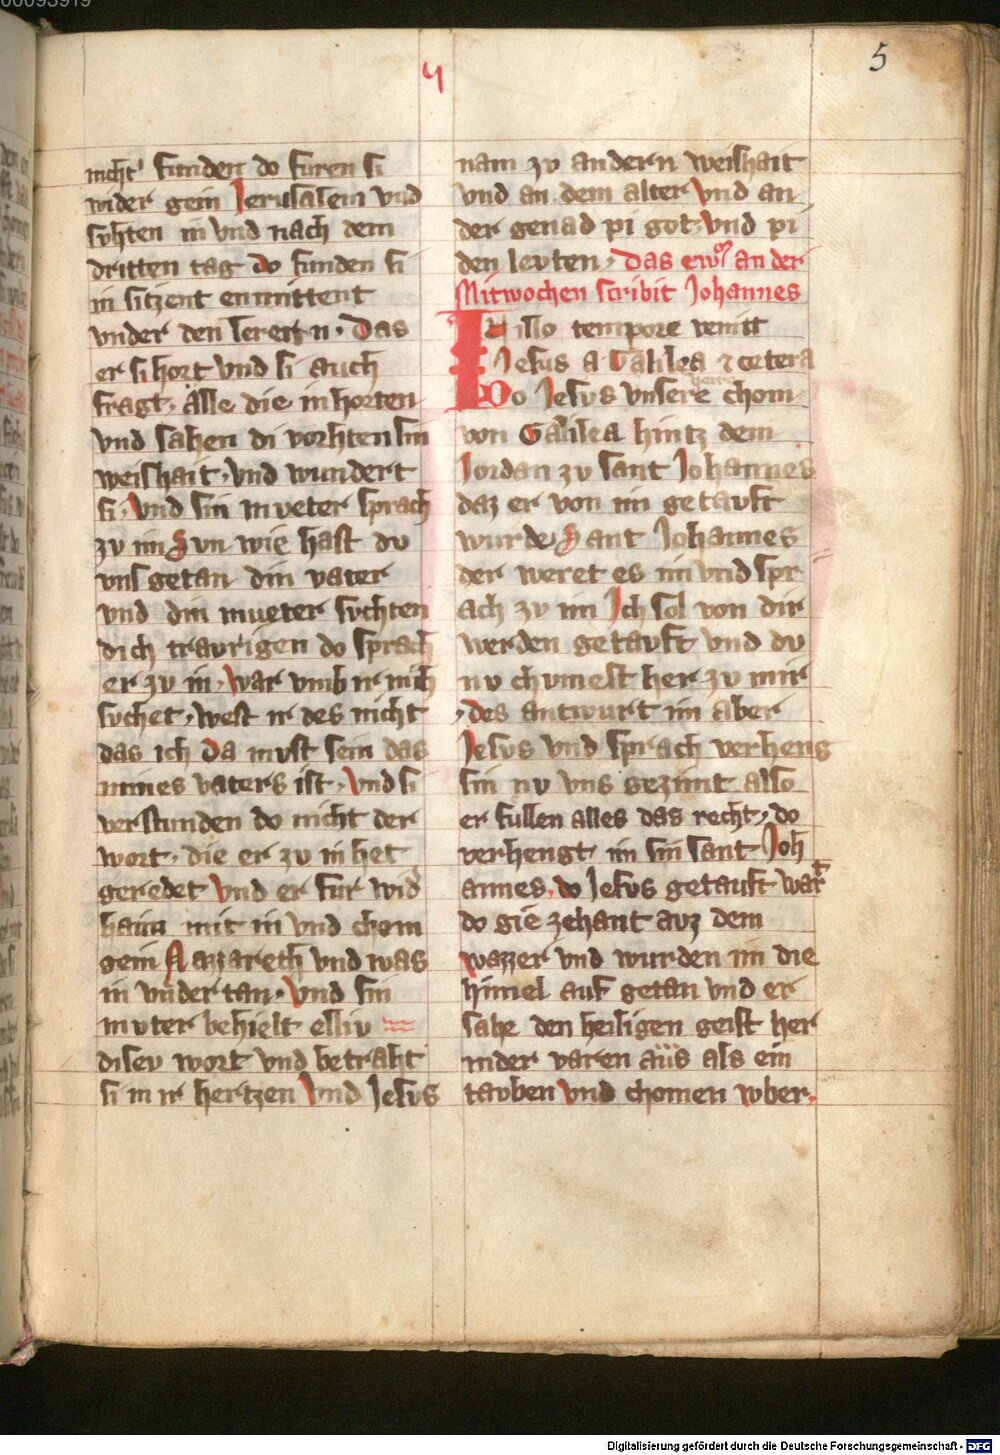 00093919
4
5
nicht funden do furen si
wider gein Jerusalem vnd
suhten in vnd nach dem
dritten tag do funden si
in sitzent enmittent
vnder den lerern · Das
er si hort vnd si auch
fragt · Alle die in horten
vnd sahen di vorhten sin
weishait · vnd wundert
si · Vnd sin mveter sprach
zv im Svn wie hast dv
vns getan din vater
vnd din mveter svchten
dich travrigen do sprach
er zv in · war vmb ir mich
svchet · west ir des nicht
das ich da mvst sein das
mines vaters ist · vnd si
verstunden do nicht der
wort · die er zv in het
geredet vnd er fur wid
haim mit in vnd chom
gein Nazareth vnd was
in vnder tan · Vnd sin
mvter behielt elliv
disev wort vnd betraht
si in ir hertzen Vnd Jesvs
nam zv andern weishait
vnd an dem alter vnd an
der genad pi got · vnd pi
den levten · Das ewg an der
Mitwochen scribit Johannes
In illo tempore venit
Jesus a Galilea & cetera
Do Jesvs vnsere herre chom
von Galilea hintz dem
Jordan zv sant Johannes
daz er von im getauft
wurde Sant Johannes
der weret es im vnd spr
ach zv im Ich sol von dir
werden getauft vnd dv
nv chvmest her zv mir
· des antwurt im aber
Jesvs vnd sprach verheng
sin nv vns gezimt also
er fullen alles das recht · do
verhengt im sin sant Joh
annes · do Jesvs getauft wart
do gie zehant avz dem
wazzer vnd wurden im die
himel auf getan vnd er
sahe den heiligen geist her
nider varen aus als ein
tavben vnd chomen vber ·
Digitalisierung gefördert durch die Deutsche Forschungsgemeinschaft - DFG